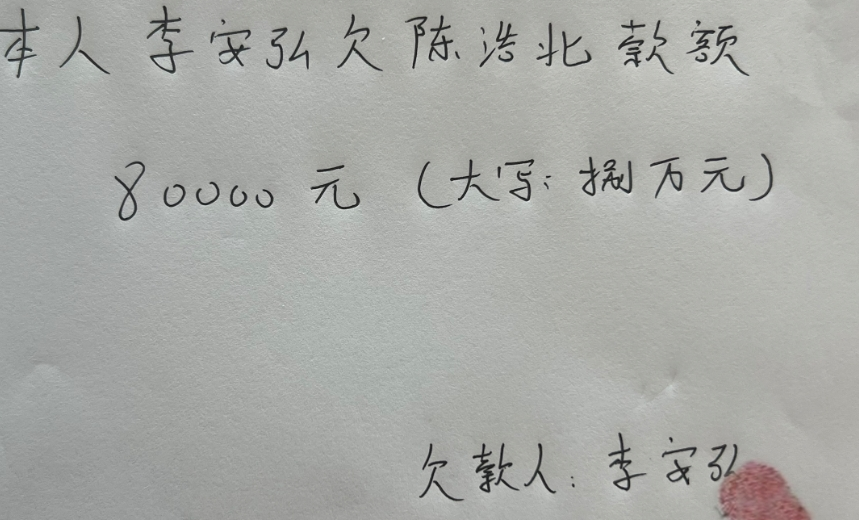 本人李安弘欠陈浩北款额
80000元（大写：捌万元）
欠款人：李安弘